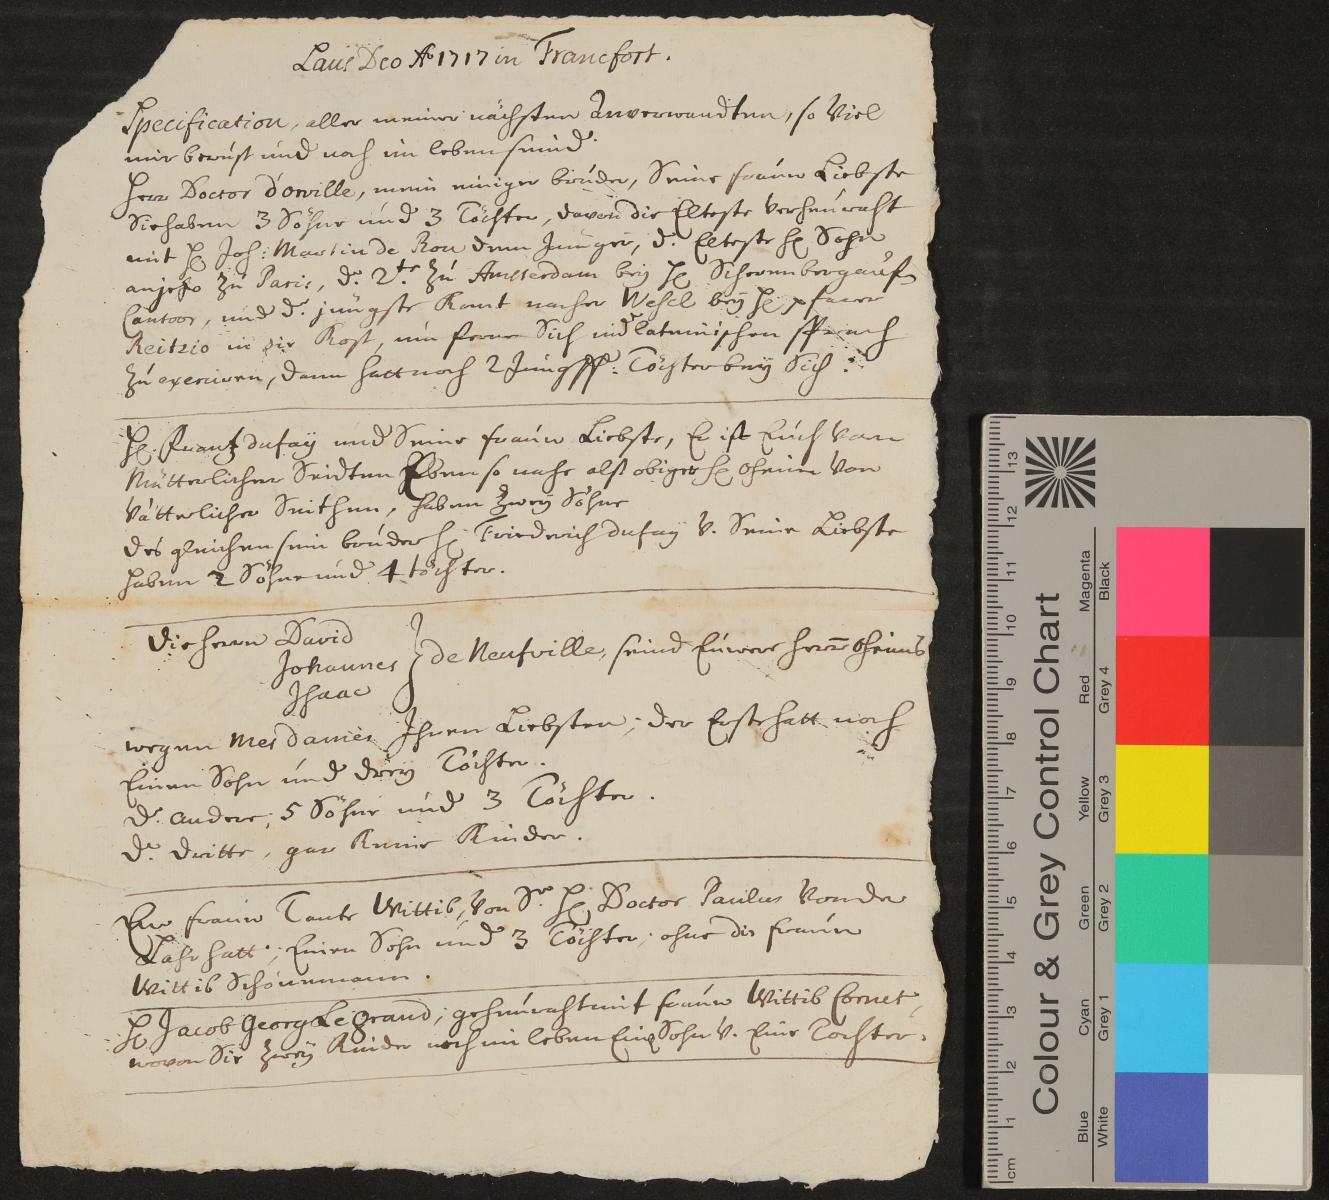 Laus Deo Aº 1717 in Francfort.
Specification, aller meiner nächsten Anverwandten, so viel
mir bewust und noch im leben seind.
Herr Doctor d'orville, mein einiger bruder, Seine frauw Liebste
Sie haben 3 Söhne und 3 Töchter, davon die Elteste verheuraht
mit H. Joh: Martin de Ron dem Junger, d. Elteste H. Sohn
anjetzo zu Paris, dr. 2te zu Amsterdam bey H. Scherenberg aufm
Contoor, und dr. jüngste Komt nacher Wesel bey H. pfarer
Reitzio in die Kost, um ferner Sich in dr lateinischen sprach
zu exerciren, dann hatt noch 2 Jungff: Töchter bey Sich.
H. Frantz dufay und Seine frauw Liebste, Er ist Euch von
Mütterlicher Seidten Eben so nahe alß obiger H. Oheim von
Vätterlicher Seithen, haben zwey Söhne
des gleichen sein bruder H. Friederich dufay v. Seine Liebste
haben 2 Söhne und 4 töchter.
Die herrn David
Johannes
Isaac
de Neufville, seind Euwere herrn Oheims
wegen Mesdames Ihren Liebsten; der Erste hatt noch
Einen Sohn und drey Töchter.
dr. andere, 5 Söhne und 3 Töchter.
dr. dritte, gar Keine Kinder.
Eur frauw Tante Wittib, von Sr. H. Doctor Paulus von der
Lahr hatt, Einen Sohn und 3 Töchter, ohne die frauw
Wittib Schönnmann.
H. Jacob Georg Le grand, geheuraht mit frauw Wittib Cornet,
wovon Sie zwey Kinder noch im leben Ein Sohn v. Eine Tochter.
Colour & Grey Control Chart
Blue Cyan Green Yellow Red Magenta
White Grey 1 Grey 2 Grey 3 Grey 4 Black
cm 1 2 3 4 5 6 7 8 9 10 11 12 13